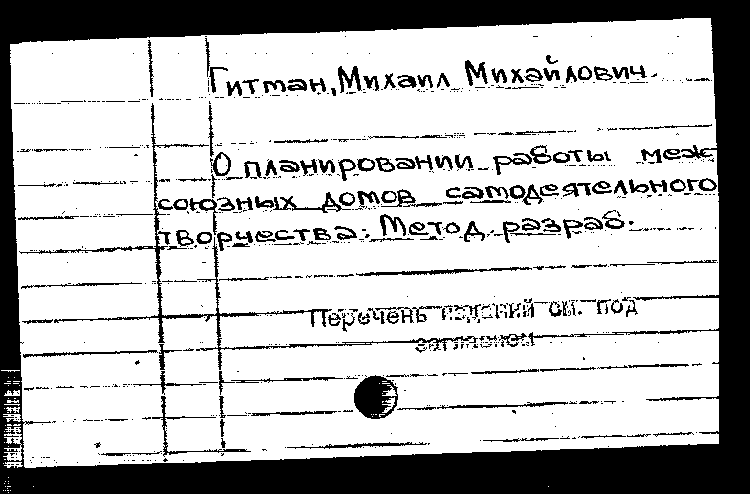 Гитман, Михаил Михайлович.
О планировании работы меж
союзных домов самодеятельного
творчества: Метод. разраб.
Перечень изданий см. под
заглавием